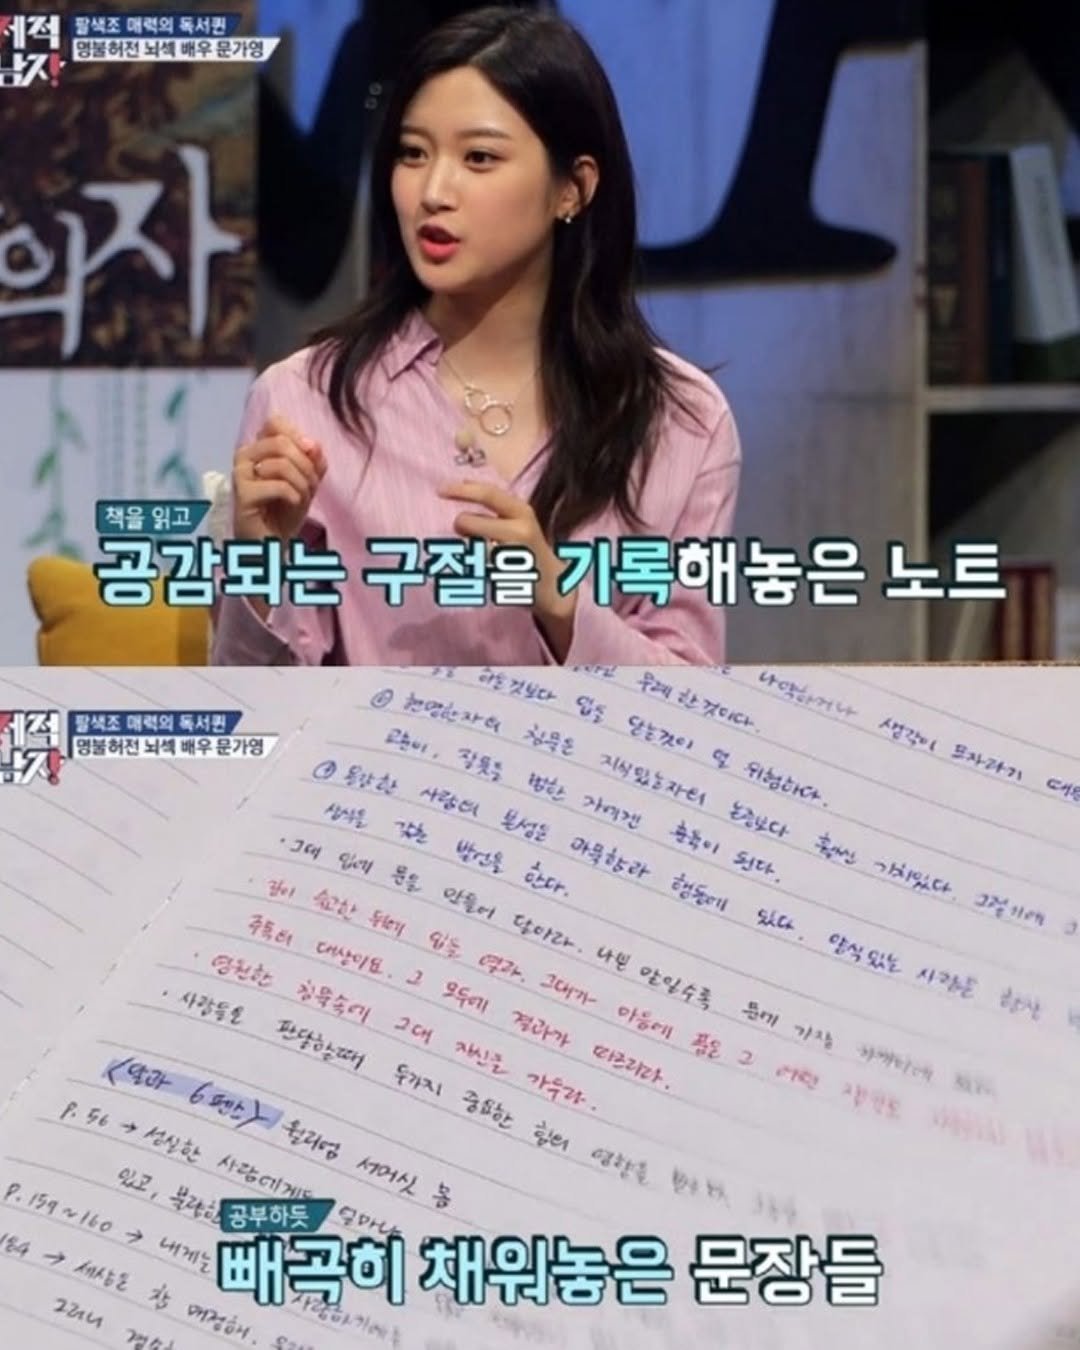 제적
남자
팔색조 매력의 독서퀸
명불허전 뇌섹 배우 문가영
의자
책을 읽고
공감되는 구절을 기록해놓은 노트
제적
남자
팔색조 매력의 독서퀸
명불허전 뇌섹 배우 문가영
나약하거나 생각이 모자라기 때문
무례한 것이다.
입을 닫는것이 덜 위험하다.
⑥ 현명한자의 침묵은 지식있는자의 논증보다 훨씬 가치있다. 그렇기에 그
교훈이, 잘못을 범한 자에겐 훈육이 된다.
⑦ 용감한 사람의 본성은 과묵함과 행동에 있다. 양식있는 사람은 항상
상식을 갖춘 발언을 한다.
· 그대 입에 문을 만들어 달아라. 나쁜 말일수록 문에 가장
· 깊이 숙고한 뒤에 입을 열라. 그대가 마음에 품은 그 어떤
주목의 대상이요. 그 모두에 결과가 따르리다.
· 영원한 침묵속에 그대 자신을 가두라.
· 사람들을 판단할때 두가지 중요한 힘의 영향을
<달과 6펜스> 윌리엄 서머싯 몸
P. 56 → 성실한 사람에게도 얼마나
있고,
P. 159~160 → 내게는
184 → 세상은 참 매정해.
그러니
공부하듯
빼곡히 채워놓은 문장들